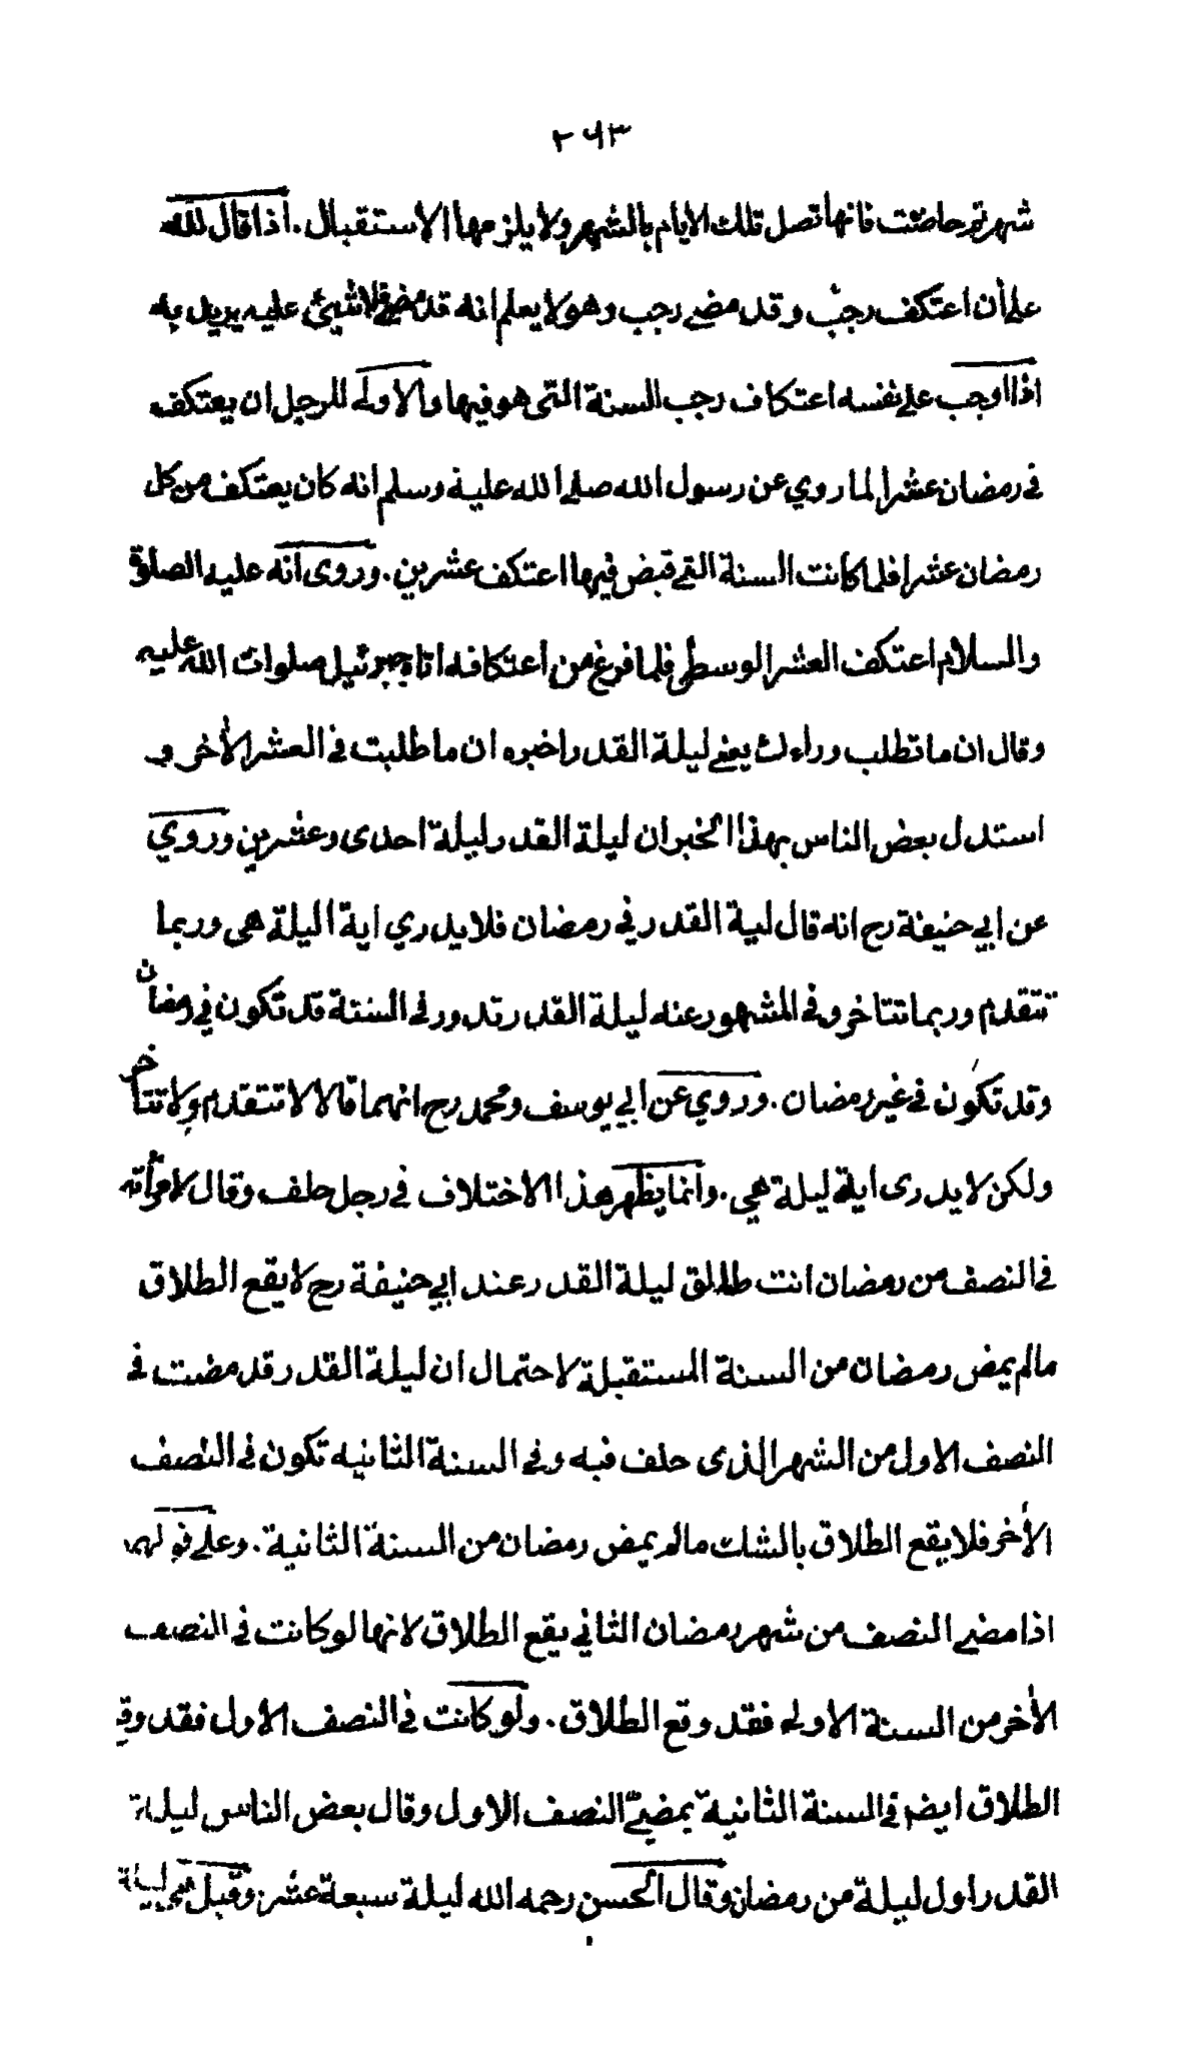 ٢٦٣
شهر ثم حاضت فانها تصل تلك الايام بالشهر ولا يلزمها الاستقبال. اذا قال لله
على أن اعتكف رجب وقد مضى رجب وهو لا يعلم انه قد مضى فلا شيئ عليه يريد به
اذا اوجب على نفسه اعتكاف رجب السنة التى هو فيها والاولى للرجل ان يعتكف
فى رمضان عشرا لما روي عن رسول الله صلى الله علية وسلم انه كان يعتكف من كل
رمضان عشرا فلما كانت السنة التى قبض فيها اعتكف عشرين. وروى انه عليه الصلوة
والسلام اعتكف العشر الوسطى فلما فرغ من اعتكافه اتاه جبرئيل صلوات الله عليه
وقال ان ما تطلب وراءك يعنى ليلة القدر اخبره ان ما طلبت فى العشر الأخر و
استدل بعض الناس بهذا الخبر ان ليلة القدر ليلة احدى وعشرين وروي
عن ابي حنيفة رح انه قال لية القدر في رمضان فلا يدري اية اليلة هى وربما
تتقدم وربما تتاخر وفى المشهور عنه ليلة القدر تدور فى السنة قد تكون في رمضان
وقد تكون فى غير رمضان. وروي عن ابي يوسف ومحمد رح انهما قالا لا تتقدم ولا تتاخر
ولكن لا يدرى اية ليلة هي. وانما يظهر هذا الاختلاف فى رجل حلف وقال لامرأته
فى النصف من رمضان انت طالق ليلة القدر عند ابي حنيفة رح لا يقع الطلاق
مالم يمض رمضان من السنة المستقبلة لاحتمال ان ليلة القدر قد مضت فى
النصف الاول من الشهر الذى حلف فيه وفى السنة الثانيه تكون فى النصف
الأخر فلا يقع الطلاق بالشك مالم يمض رمضان من السنة الثانية. وعلى قولهما
اذا مضى النصف من شهر رمضان الثاني يقع الطلاق لانها لو كانت فى النصف
الأخر من السنة الاولى فقد وقع الطلاق. ولو كانت فى النصف الاول فقد وقع
الطلاق ايضا فى السنة الثانية بمضي النصف الاول وقال بعض الناس ليلة
القدر اول ليلة من رمضان وقال الحسن رحمه الله ليلة سبعة عشر وقيل هي ليلة